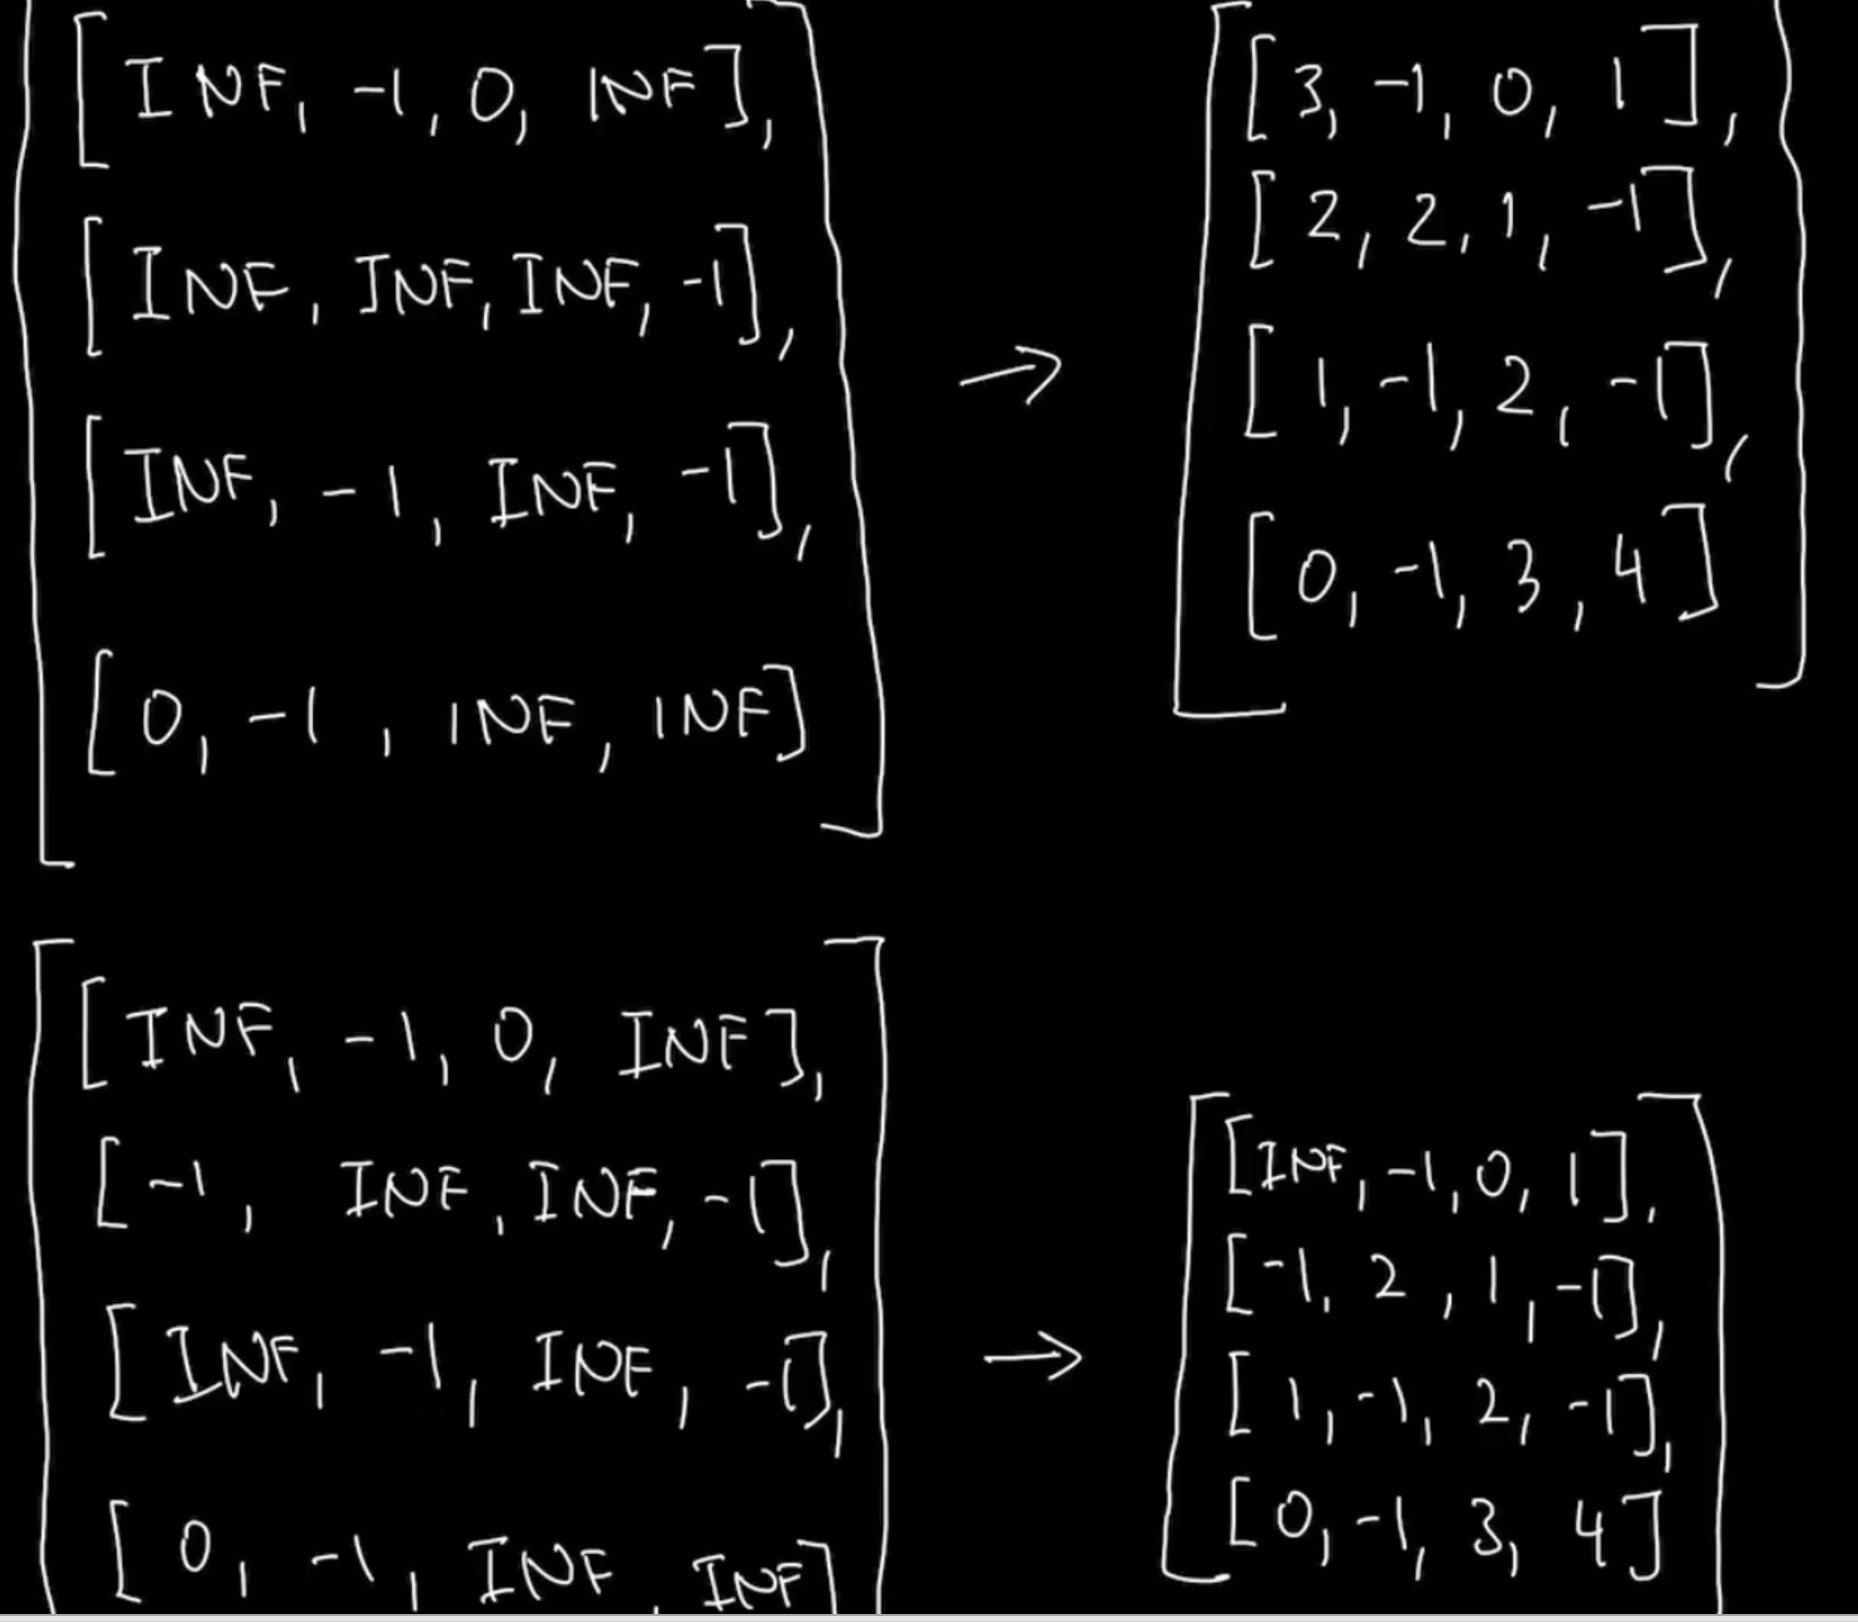 [[INF, -1, 0, INF],
[INF, INF, INF, -1],
[INF, -1, INF, -1],
[0, -1, INF, INF]]
→
[[3, -1, 0, 1],
[2, 2, 1, -1],
[1, -1, 2, -1],
[0, -1, 3, 4]]
[[INF, -1, 0, INF],
[-1, INF, INF, -1],
[INF, -1, INF, -1],
[0, -1, INF, INF]
→
[[INF, -1, 0, 1],
[-1, 2, 1, -1],
[1, -1, 2, -1],
[0, -1, 3, 4]]